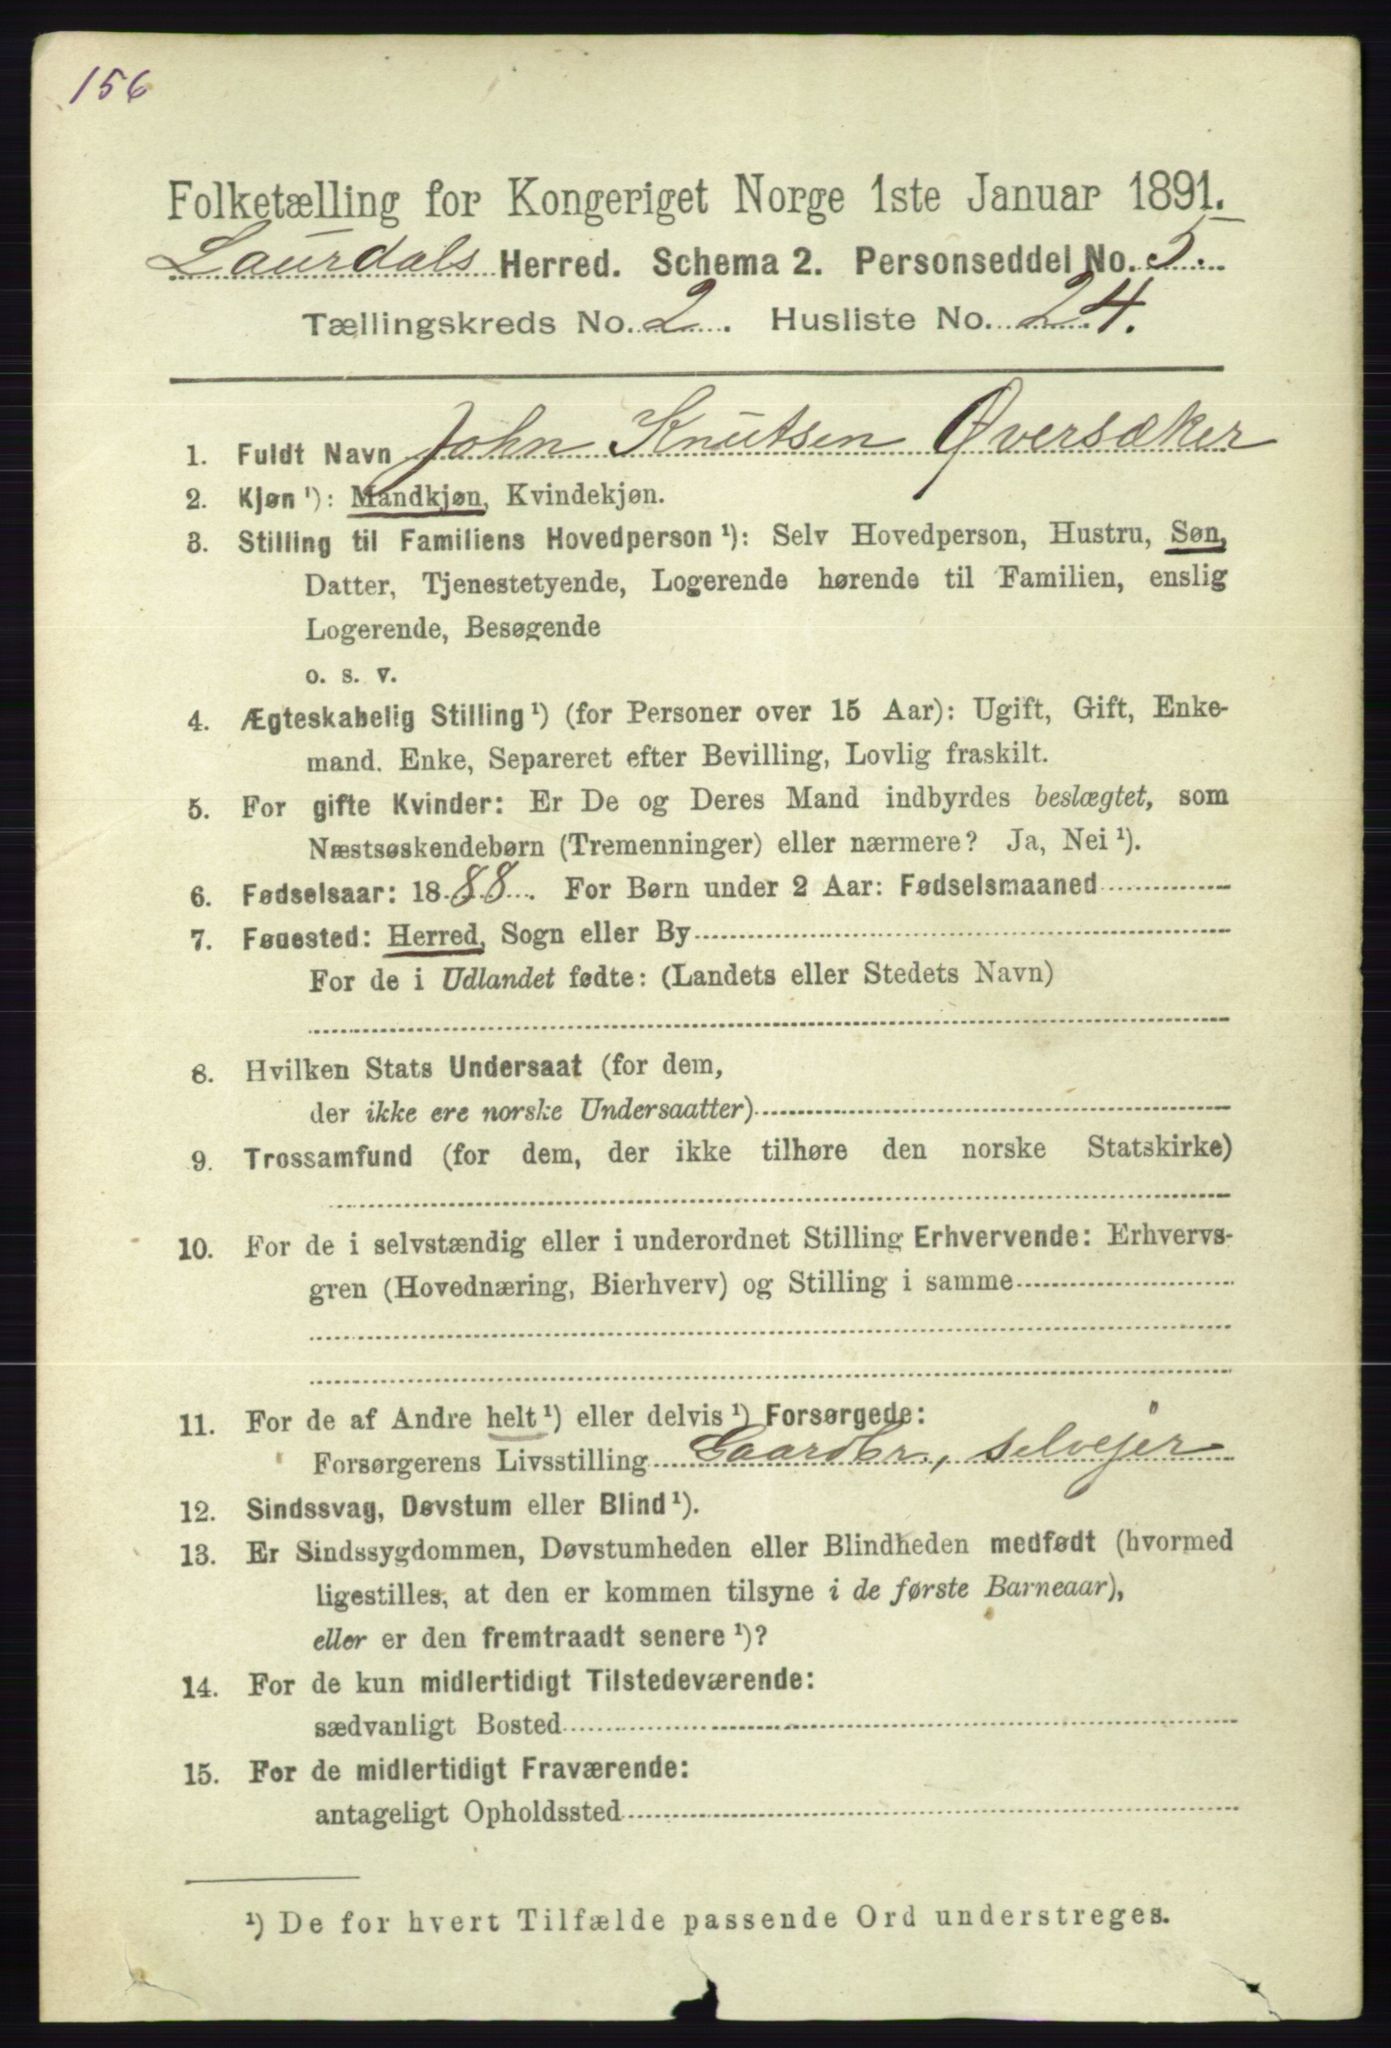 156
Folketælling for Kongeriget Norge 1ste Januar 1891.
Laurdals Herred. Schema 2. Personseddel No. 5.
Tællingskreds No. 2. Husliste No. 24.
1. Fuldt Navn John Knutsen Øversæker
2. Kjøn ¹): Mandkjøn, Kvindekjøn.
3. Stilling til Familiens Hovedperson ¹): Selv Hovedperson, Hustru, Søn,
Datter, Tjenestetyende, Logerende hørende til Familien, enslig
Logerende, Besøgende
o. s. v.
4. Ægteskabelig Stilling ¹) (for Personer over 15 Aar): Ugift, Gift, Enke-
mand. Enke, Separeret efter Bevilling, Lovlig fraskilt.
5. For gifte Kvinder: Er De og Deres Mand indbyrdes beslægtet, som
Næstsøskendebørn (Tremenninger) eller nærmere? Ja, Nei ¹).
6. Fødselsaar: 1888. For Børn under 2 Aar: Fødselsmaaned
7. Føuested: Herred, Sogn eller By
For de i Udlandet fødte: (Landets eller Stedets Navn)
8. Hvilken Stats Undersaat (for dem,
der ikke ere norske Undersaatter)
9. Trossamfund (for dem, der ikke tilhøre den norske Statskirke)
10. For de i selvstændig eller i underordnet Stilling Erhvervende: Erhvervs-
gren (Hovednæring, Bierhverv) og Stilling i samme
11. For de af Andre helt ¹) eller delvis ¹) Forsørgede:
Forsørgerens Livsstilling Gaardbr., selvejer
12. Sindssvag, Døvstum eller Blind ¹).
13. Er Sindssygdommen, Døvstumheden eller Blindheden medfødt (hvormed
ligestilles, at den er kommen tilsyne i de første Barneaar),
eller er den fremtraadt senere ¹)?
14. For de kun midlertidigt Tilstedeværende:
sædvanligt Bosted
15. For de midlertidigt Fraværende:
antageligt Opholdssted
¹) De for hvert Tilfælde passende Ord understreges.